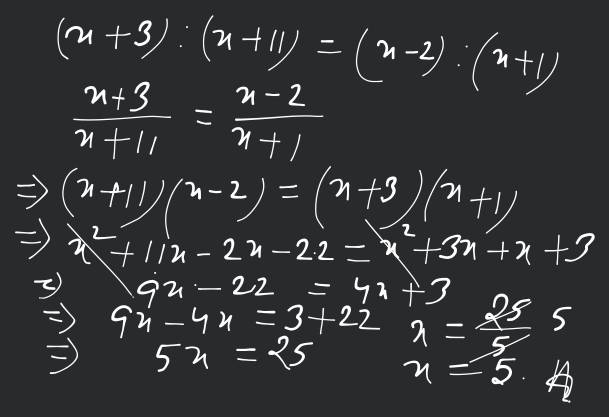 (x+3):(x+11) = (x-2):(x+1)
x+3/x+11 = x-2/x+1
=> (x+11)(x-2) = (x+3)(x+1)
=> x²+11x-2x-22 = x²+3x+x+3
=> 9x-22 = 4x+3
=> 9x-4x = 3+22
=> 5x = 25
x = 25/5 5
x = 5.